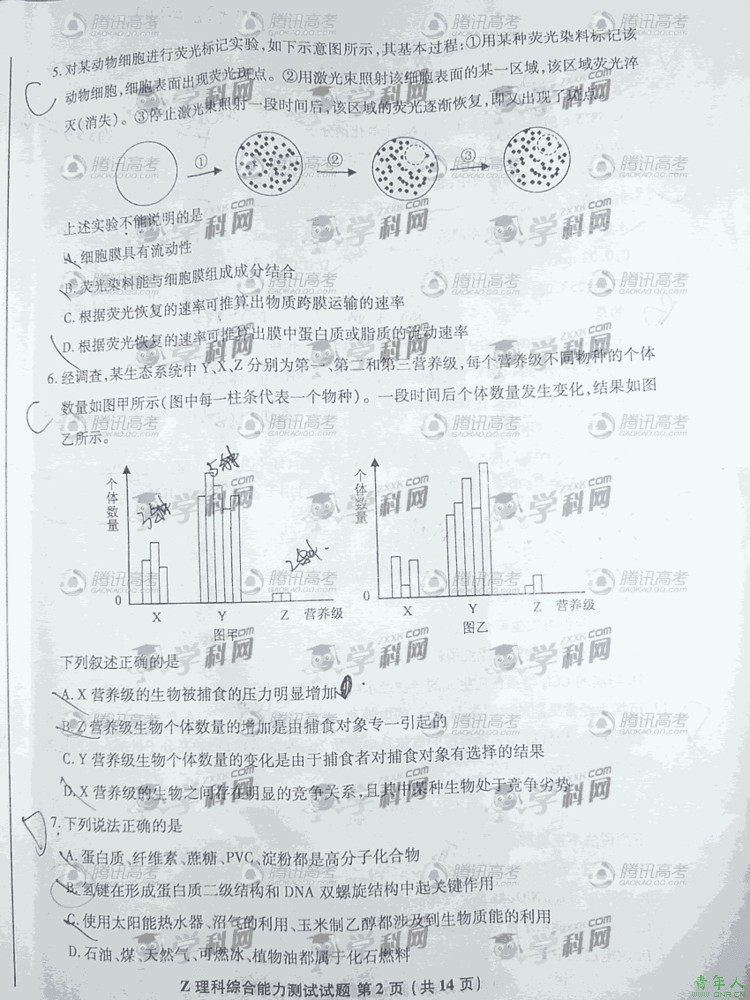 5.对某动物细胞进行荧光标记实验,如下示意图所示,其基本过程:①用某种荧光染料标记该
动物细胞,细胞表面出现荧光斑点。②用激光束照射该细胞表面的某一区域,该区域荧光淬
灭(消失)。③停止激光束照射一段时间后,该区域的荧光逐渐恢复,即又出现了斑点。
C
① ② ③
上述实验不能说明的是
A.细胞膜具有流动性
B.荧光染料能与细胞膜组成成分结合
C.根据荧光恢复的速率可推算出物质跨膜运输的速率
D.根据荧光恢复的速率可推算出膜中蛋白质或脂质的流动速率
6.经调查,某生态系统中Y、X、Z分别为第一、第二和第三营养级,每个营养级不同物种的个体
数量如图甲所示(图中每一柱条代表一个物种)。一段时间后个体数量发生变化,结果如图
乙所示。
C
个体数量
5种
0
X Y Z 营养级
图甲
个体数量
0
X Y Z 营养级
图乙
下列叙述正确的是
A.X营养级的生物被捕食的压力明显增加
B.Z营养级生物个体数量的增加是由捕食对象专一引起的
C.Y营养级生物个体数量的变化是由于捕食者对捕食对象有选择的结果
D.X营养级的生物之间存在明显的竞争关系,且其中某种生物处于竞争劣势
7.下列说法正确的是
A.蛋白质、纤维素、蔗糖、PVC、淀粉都是高分子化合物
B.氢键在形成蛋白质二级结构和DNA双螺旋结构中起关键作用
C.使用太阳能热水器、沼气的利用、玉米制乙醇都涉及到生物质能的利用
D.石油、煤、天然气、可燃冰、植物油都属于化石燃料
Z 理科综合能力测试试题 第2页(共14页)
腾讯高考
GAOKAO.QQ.COM
学科网
ZXXK.COM
青年人